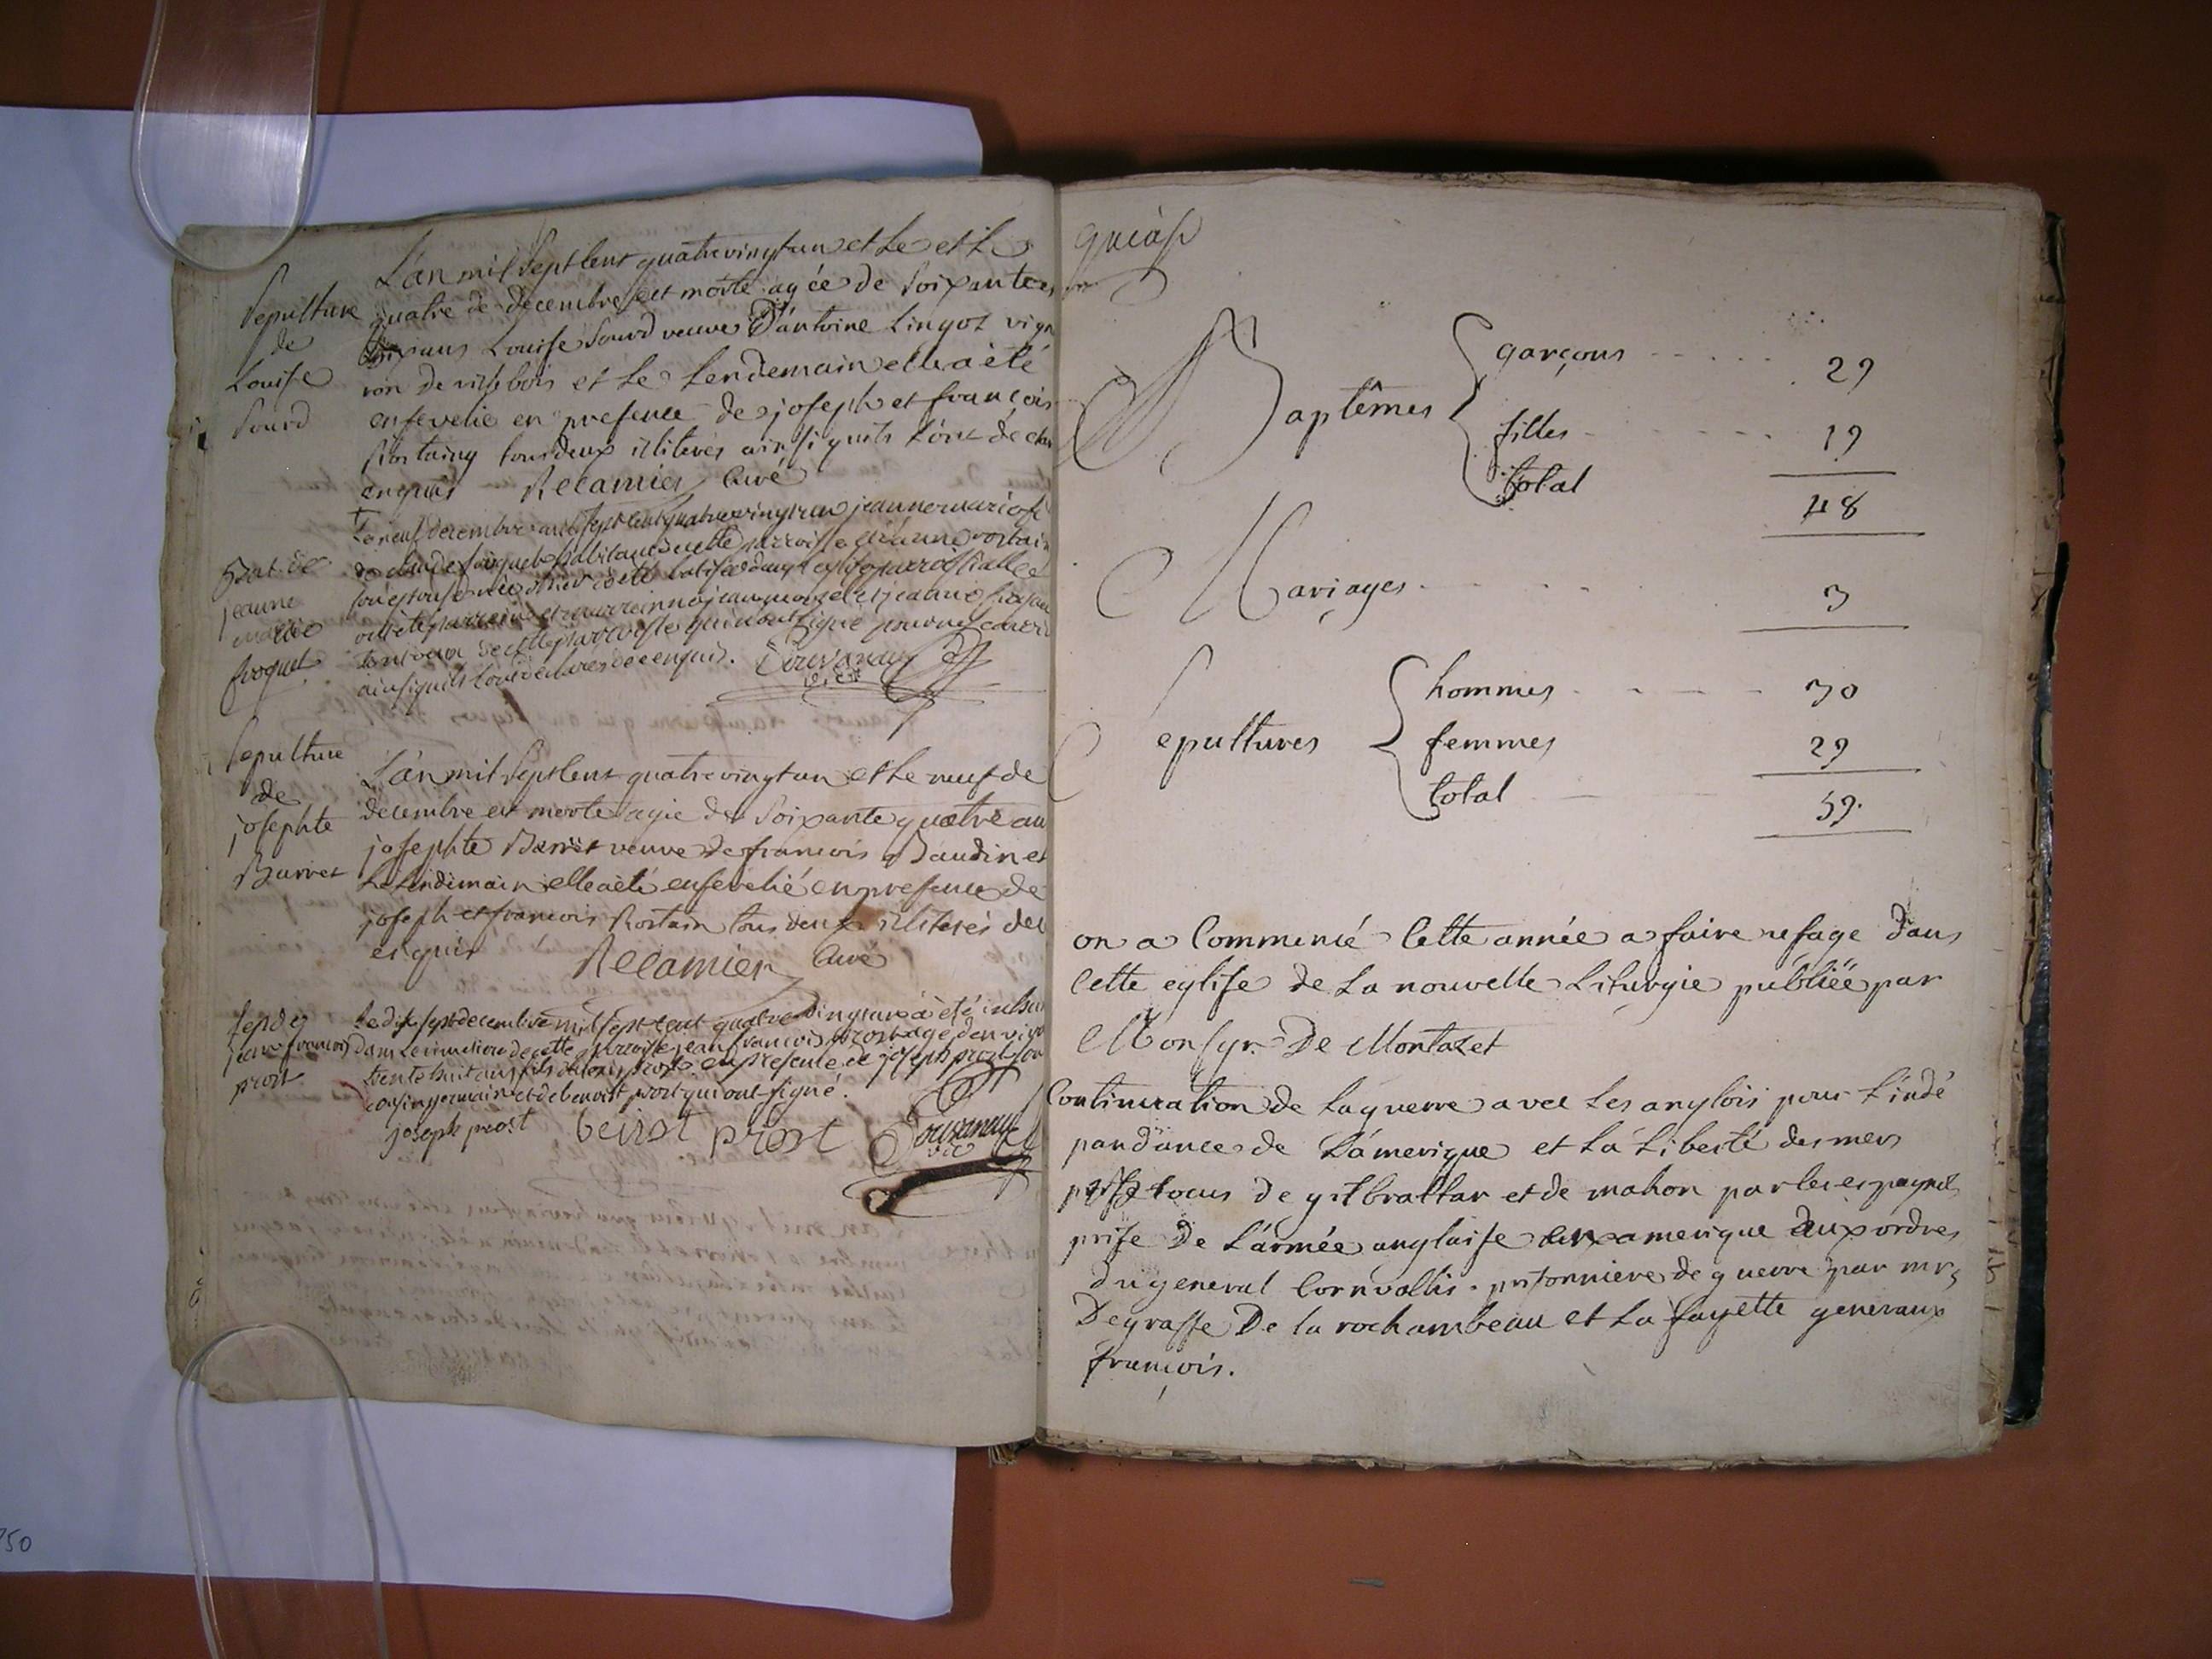 Sepulture
de
Louise
Sourd
L'an mil sept cent quatre vingt un et le et le
quatre de decembre est morte agée de soixante et
dix ans Louise Sourd veuve D'antoine Lingot vign
ron de villebois et le lendemain elle a èté
ensevelie en presence de joseph et françois
Rostaing tous deux illiterés ainsi quils l'ont declar
enquis Recamier Curé
Bat. de
jeanne
marie
froquet
Le neuf decembre mil sept cent quatre vingt un jeanne marie
ainsi quils l'ont declarés de ce enquis.
Sepulture
de
josephte
Barret
L'an mil sept cent quatre vingt un et le neuf de
decembre est morte agée de soixante quatre an
josephte Barret veuve de francois Baudin et
le lendemain elle a été ensevelié en presence de
joseph et francois Rostain tous deux illiterés de ce
enquis Recamier Curé
sep de
jean francois
prost
Le dix sept decembre mil sept cent quatre vingt un a èté inhu
dans le cimetiere de cette parroisse jean francois prost agé d'env
trente huit ans fils de prost en presence de joseph prost son
cousin germain et de benoist prost qui ont signé.
joseph prost benoit prost
750
Baptêmes
garçons 29
filles 19
total 48
Mariages 3
Sepultures
hommes 30
femmes 29
total 59.
on a Commencé Cette année a faire usage dans
Cette eglise de La nouvelle Liturgie publiée par
Monsgr. De Montazet
Continuation de la guerre avec Les anglois pour L'indé
pandance de L'amerique et La Liberté des mers
blocus de gilbraltar et de mahon par les espagnols
prise De L'armée anglaise en amerique aux ordres
du general Cornvallis. prisonniere de guerre par mrs
Degrasse De la rochambeau et La fayette generaux
françois.